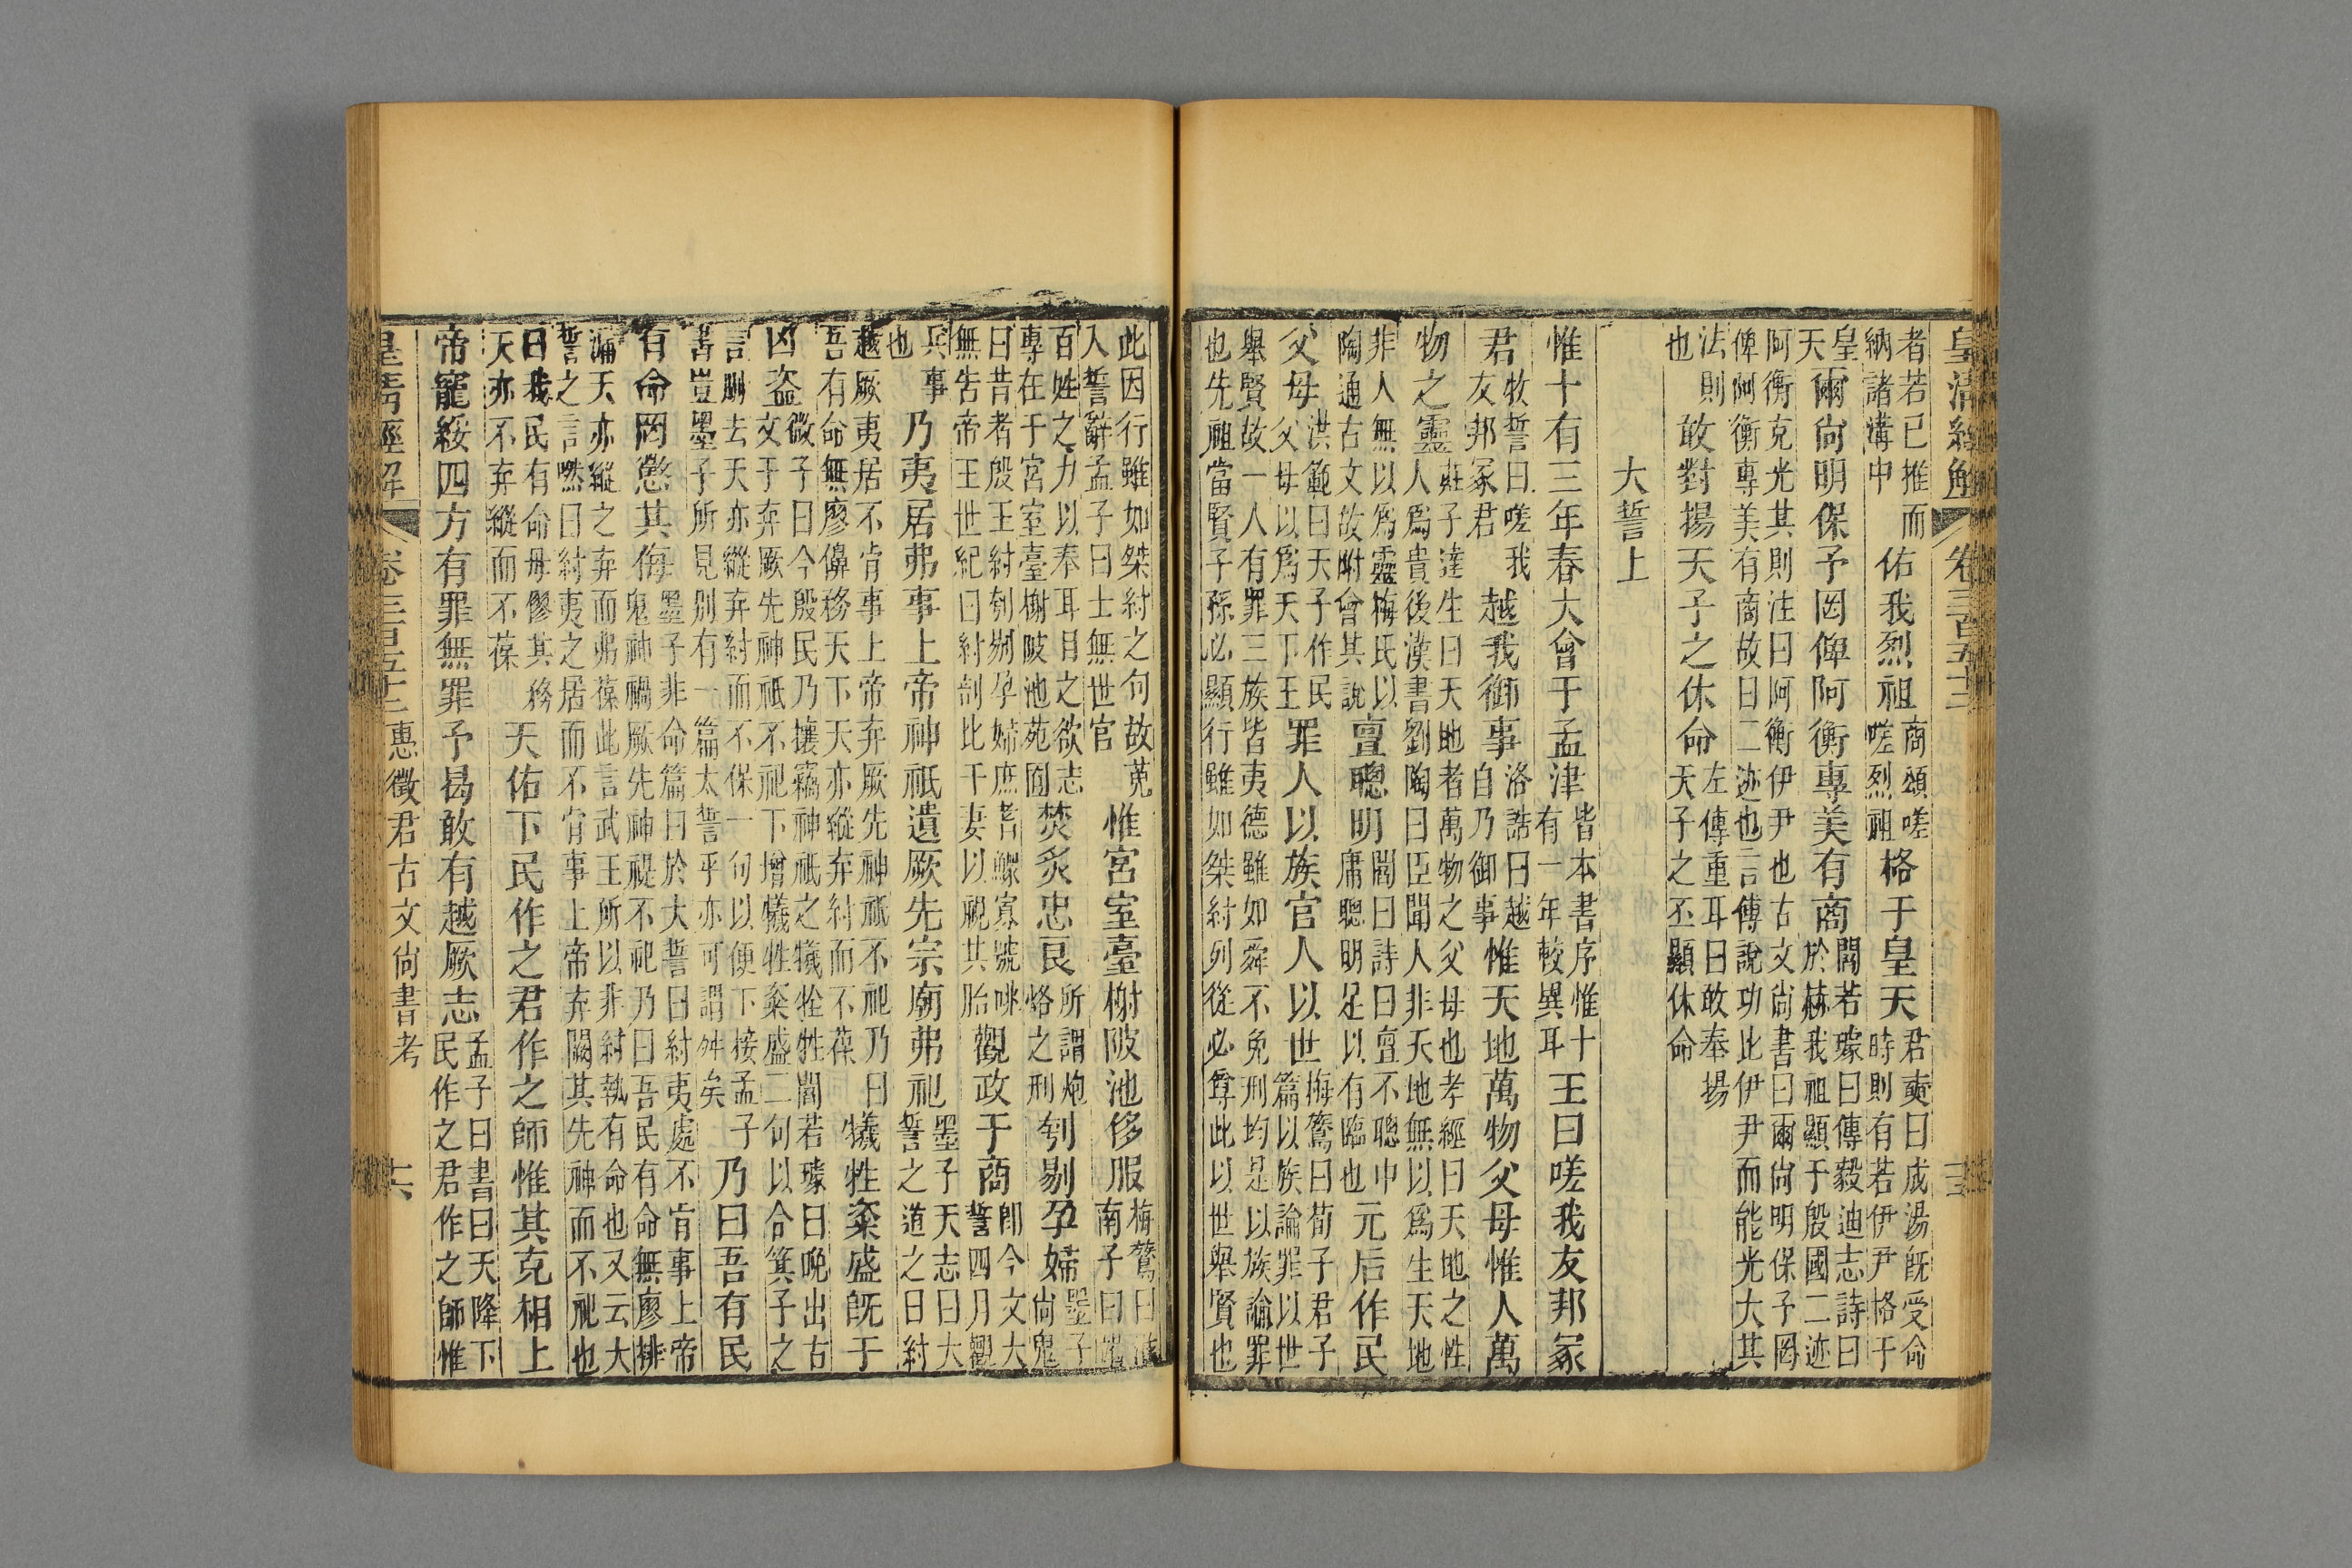 皇清經解 卷三百五十三
者若已推而
納諸溝中
佑我烈祖
商頌嗟
嗟烈祖
格于皇天
君奭曰成湯旣受命
時則有若伊尹格于
皇
天
爾尙明保予罔俾阿衡專美有商
閻若璩曰傅毅迪志詩曰
於赫我祖顯于殷國二迹
阿衡克光其則注曰阿衡伊尹也古文尙書曰爾尙明保予罔
俾阿衡專美有商故曰二迹也言傅說功比伊尹而能光大其
法則
也
敢對揚天子之休命
左傳重耳曰敢奉揚
天子之丕顯休命
大誓上
惟十有三年春大會于孟津
皆本書序惟十
有一年較異耳
王曰嗟我友邦冢
君
牧誓曰嗟我
友邦冢君
越我御事
洛誥曰越
自乃御事
惟天地萬物父母惟人萬
物之靈
莊子達生曰天地者萬物之父母也孝經曰天地之性
人爲貴後漢書劉陶曰臣聞人非天地無以爲生天地
非人無以爲靈梅氏以
陶通古文故附會其說
亶聰明
閻曰詩曰亶不聰中
庸聰明足以有臨也
元后作民
父母
洪範曰天子作民
父母以爲天下王
罪人以族官人以世
梅鷟曰荀子君子
篇以族論罪以世
舉賢故一人有罪三族皆夷德雖如舜不免刑均是以族論罪
也先祖當賢子孫必顯行雖如桀紂列從必尊此以世舉賢也
此因行雖如桀紂之句故蒐
入誓辭孟子曰士無世官
惟宮室臺榭陂池侈服
梅鷟曰淮
南子曰
百姓之力以奉耳目之欲志
專在于宮室臺榭陂池苑囿
焚炙忠良
所謂炮
烙之刑
刳剔孕婦
墨子
尙鬼
曰昔者殷王紂刳剔孕婦庶耆鰥寡號咷
無告帝王世紀曰紂剖比干妻以視其胎
觀政于商
卽今文大
誓四月觀
兵事
也
乃夷居弗事上帝神祇遺厥先宗廟弗祀
墨子天志曰大
誓之道之曰紂
越厥夷居不肯事上帝弃厥先神祇不祀乃曰
吾有命無廖僔務天下天亦縱弃紂而不葆
犧牲粢盛旣于
凶盗
微子曰今殷民乃攘竊神祇之犧牷牲閻若璩曰晚出古
文于弃厥先神祇不祀下增犧牲粢盛二句以合箕子之
言刪去天亦縱弃紂而不保一句以便下接孟子
書豈墨子所見别有一篇太誓乎亦可謂舛矣
乃曰吾有民
有命罔懲其侮
墨子非命篇曰於大誓曰紂夷處不肯事上帝
鬼神禍厥先神禔不祀乃曰吾民有命無廖排
漏天亦縱之弃而弗葆此言武王所以非紂執有命也又云大
誓之言然曰紂夷之居而不肯事上帝弃闕其先神而不祀也
曰我民有命毋僇其務
天亦不弃縱而不葆
天佑下民作之君作之師惟其克相上
帝寵綏四方有罪無罪予曷敢有越厥志
孟子曰書曰天降下
民作之君作之師惟
皇清經解 卷三百五十三 惠徵君古文尙書考